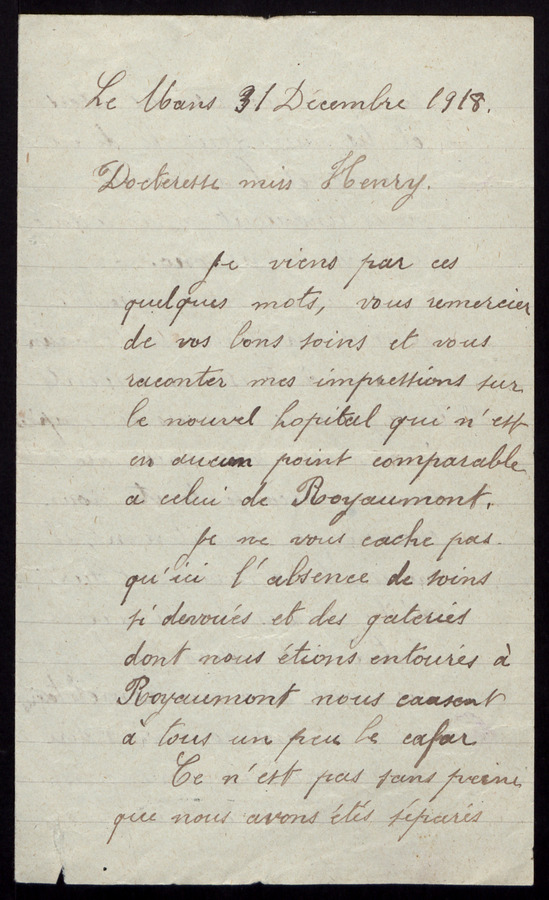 Le Mans 31 Décembre 1918.
Docteresse miss Henry.
Je viens par ces
quelques mots, vous remercier
de vos bons soins et vous
raconter mes impressions sur
le nouvel hopital qui n'est
en aucun point comparable
a celui de Royaumont.
Je ne vous cache pas
qu'ici l'absence de soins
si devoués et des gateries
dont nous étions entourés à
Royaumont nous causent
à tous un peu le cafar
Ce n'est pas sans peine
que nous avons étés séparés